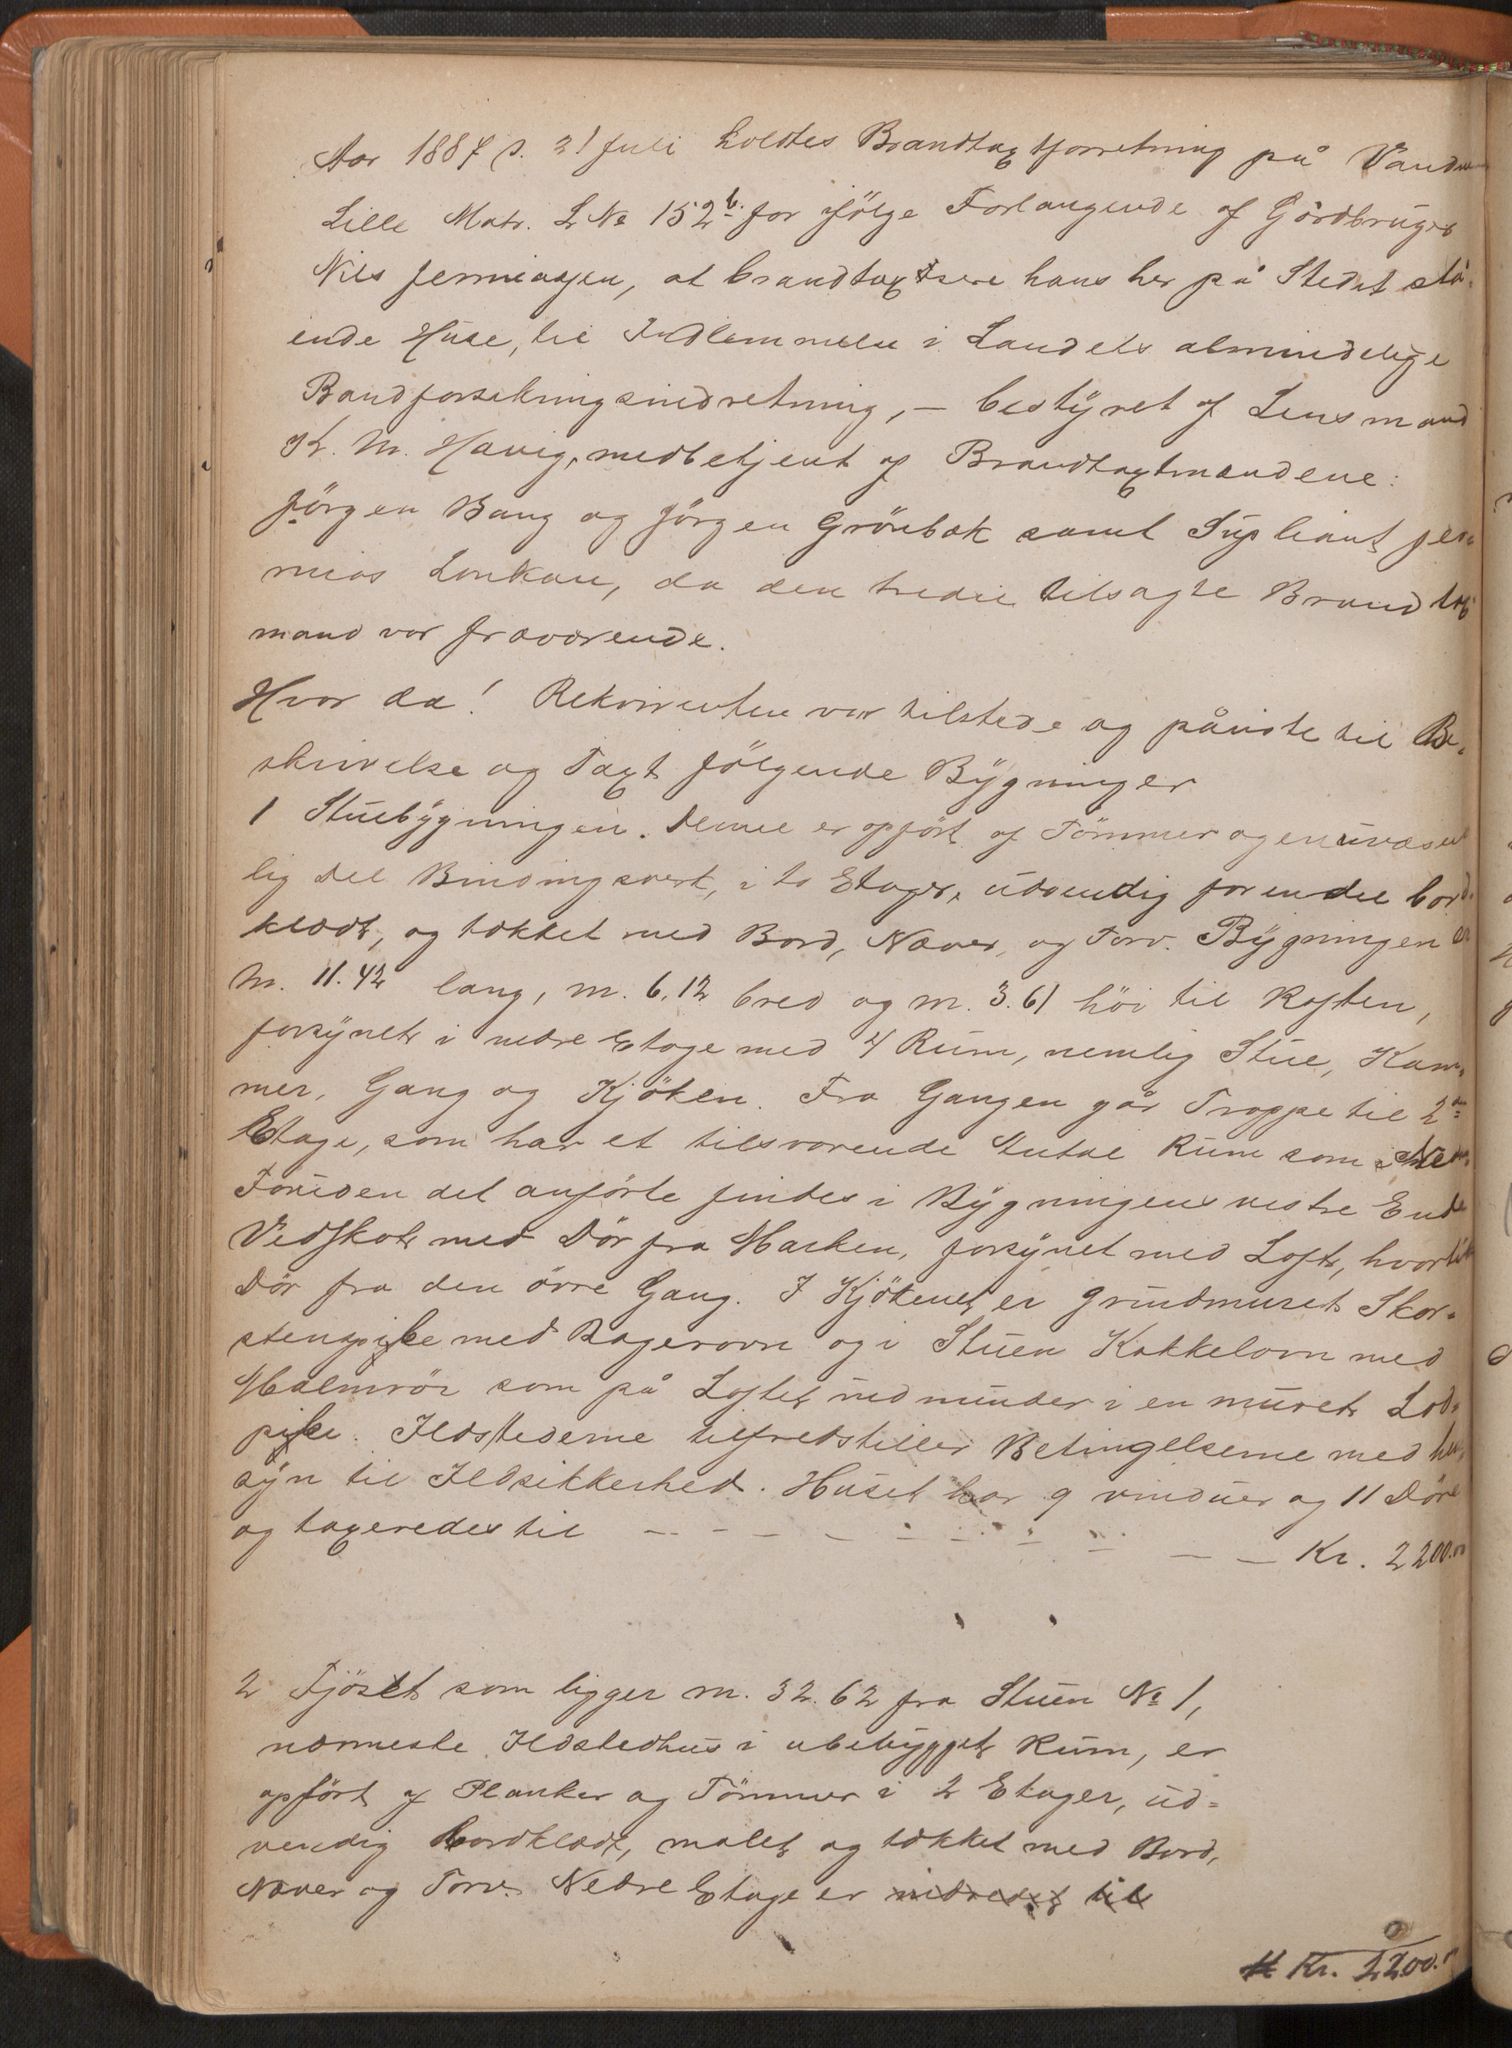 Aar 1887 d. 21 Juli holdtes Brandtaxtforretning på
Lille Matr. L№ 152 b. for ifölge Forlangende af Gårdbruger
Nils Jermiasen, at brandtaxtsere hans her på Stedet stå-
ende Huse, til Indlemmelse i Landets almindelige
Bandforsikringsindretning, — bestÿret af Lensmand
K. M. Havig, medbetjent af Brandtaxtmændene:
Jörgen Bang og Jörgen Grönbæk samt Supliant Jer-
mias Lonkan, da den tredie tilsagte Brandtax
mand var fraværende.
Hvor da! Rekvirenten var tilstede og påviste til Be-
skrivelse og Taxt fölgende Bÿgninger
1 Stuebÿgningen. Denne er opfört af Tömmer og en uvæsent
lig Del Bindingsverk, i to Etager, udvendig for en del bord-
klædt, og tækket med Bord, Næver, og Torv. Bÿgningen er
M. 11.42 lang, m. 6.12 bred og m. 3.61 höi til Raften,
forsÿnet i nedre Etage med 4 Rum, nemlig Stue, Kam-
mer, Gang og Kjöken. Fra Gangen går Trappe til 2den
Etage, som har et tilsvarende Antal Rum som Nedre.
Foruden det anförte findes i Bÿgningens vestre Ende
Vedskot med Dör fra Marken, forsÿnet med Loft, hvortil
Dör fra den övre Gang. I Kjökenet er grundmuret Skor-
stenspibe med Bagerovn og i Stuen Kakkelovn med
Malmrör som på Loftet indmunder i en muret Lod-
pibe. Ildstederne tilfredstiller Betingelserne med hen-
sÿn til Ildsikkerhed. Huset har 9 vinduer og 11 Döre
og taxeredes til — — — — — — — — — — Kr. 2200.00
2 Fjöset som ligger m. 32.62 fra Stuen № 1,
nærmeste Ildstedhus i ubebÿgget Rum, er
opfört af Planker og Tömmer i 2 Etager, ud-
vendig bordklædt, malet og tækket med Bord,
Næver og Torv. Nedre Etage er indredet til
Kr. 2200.00